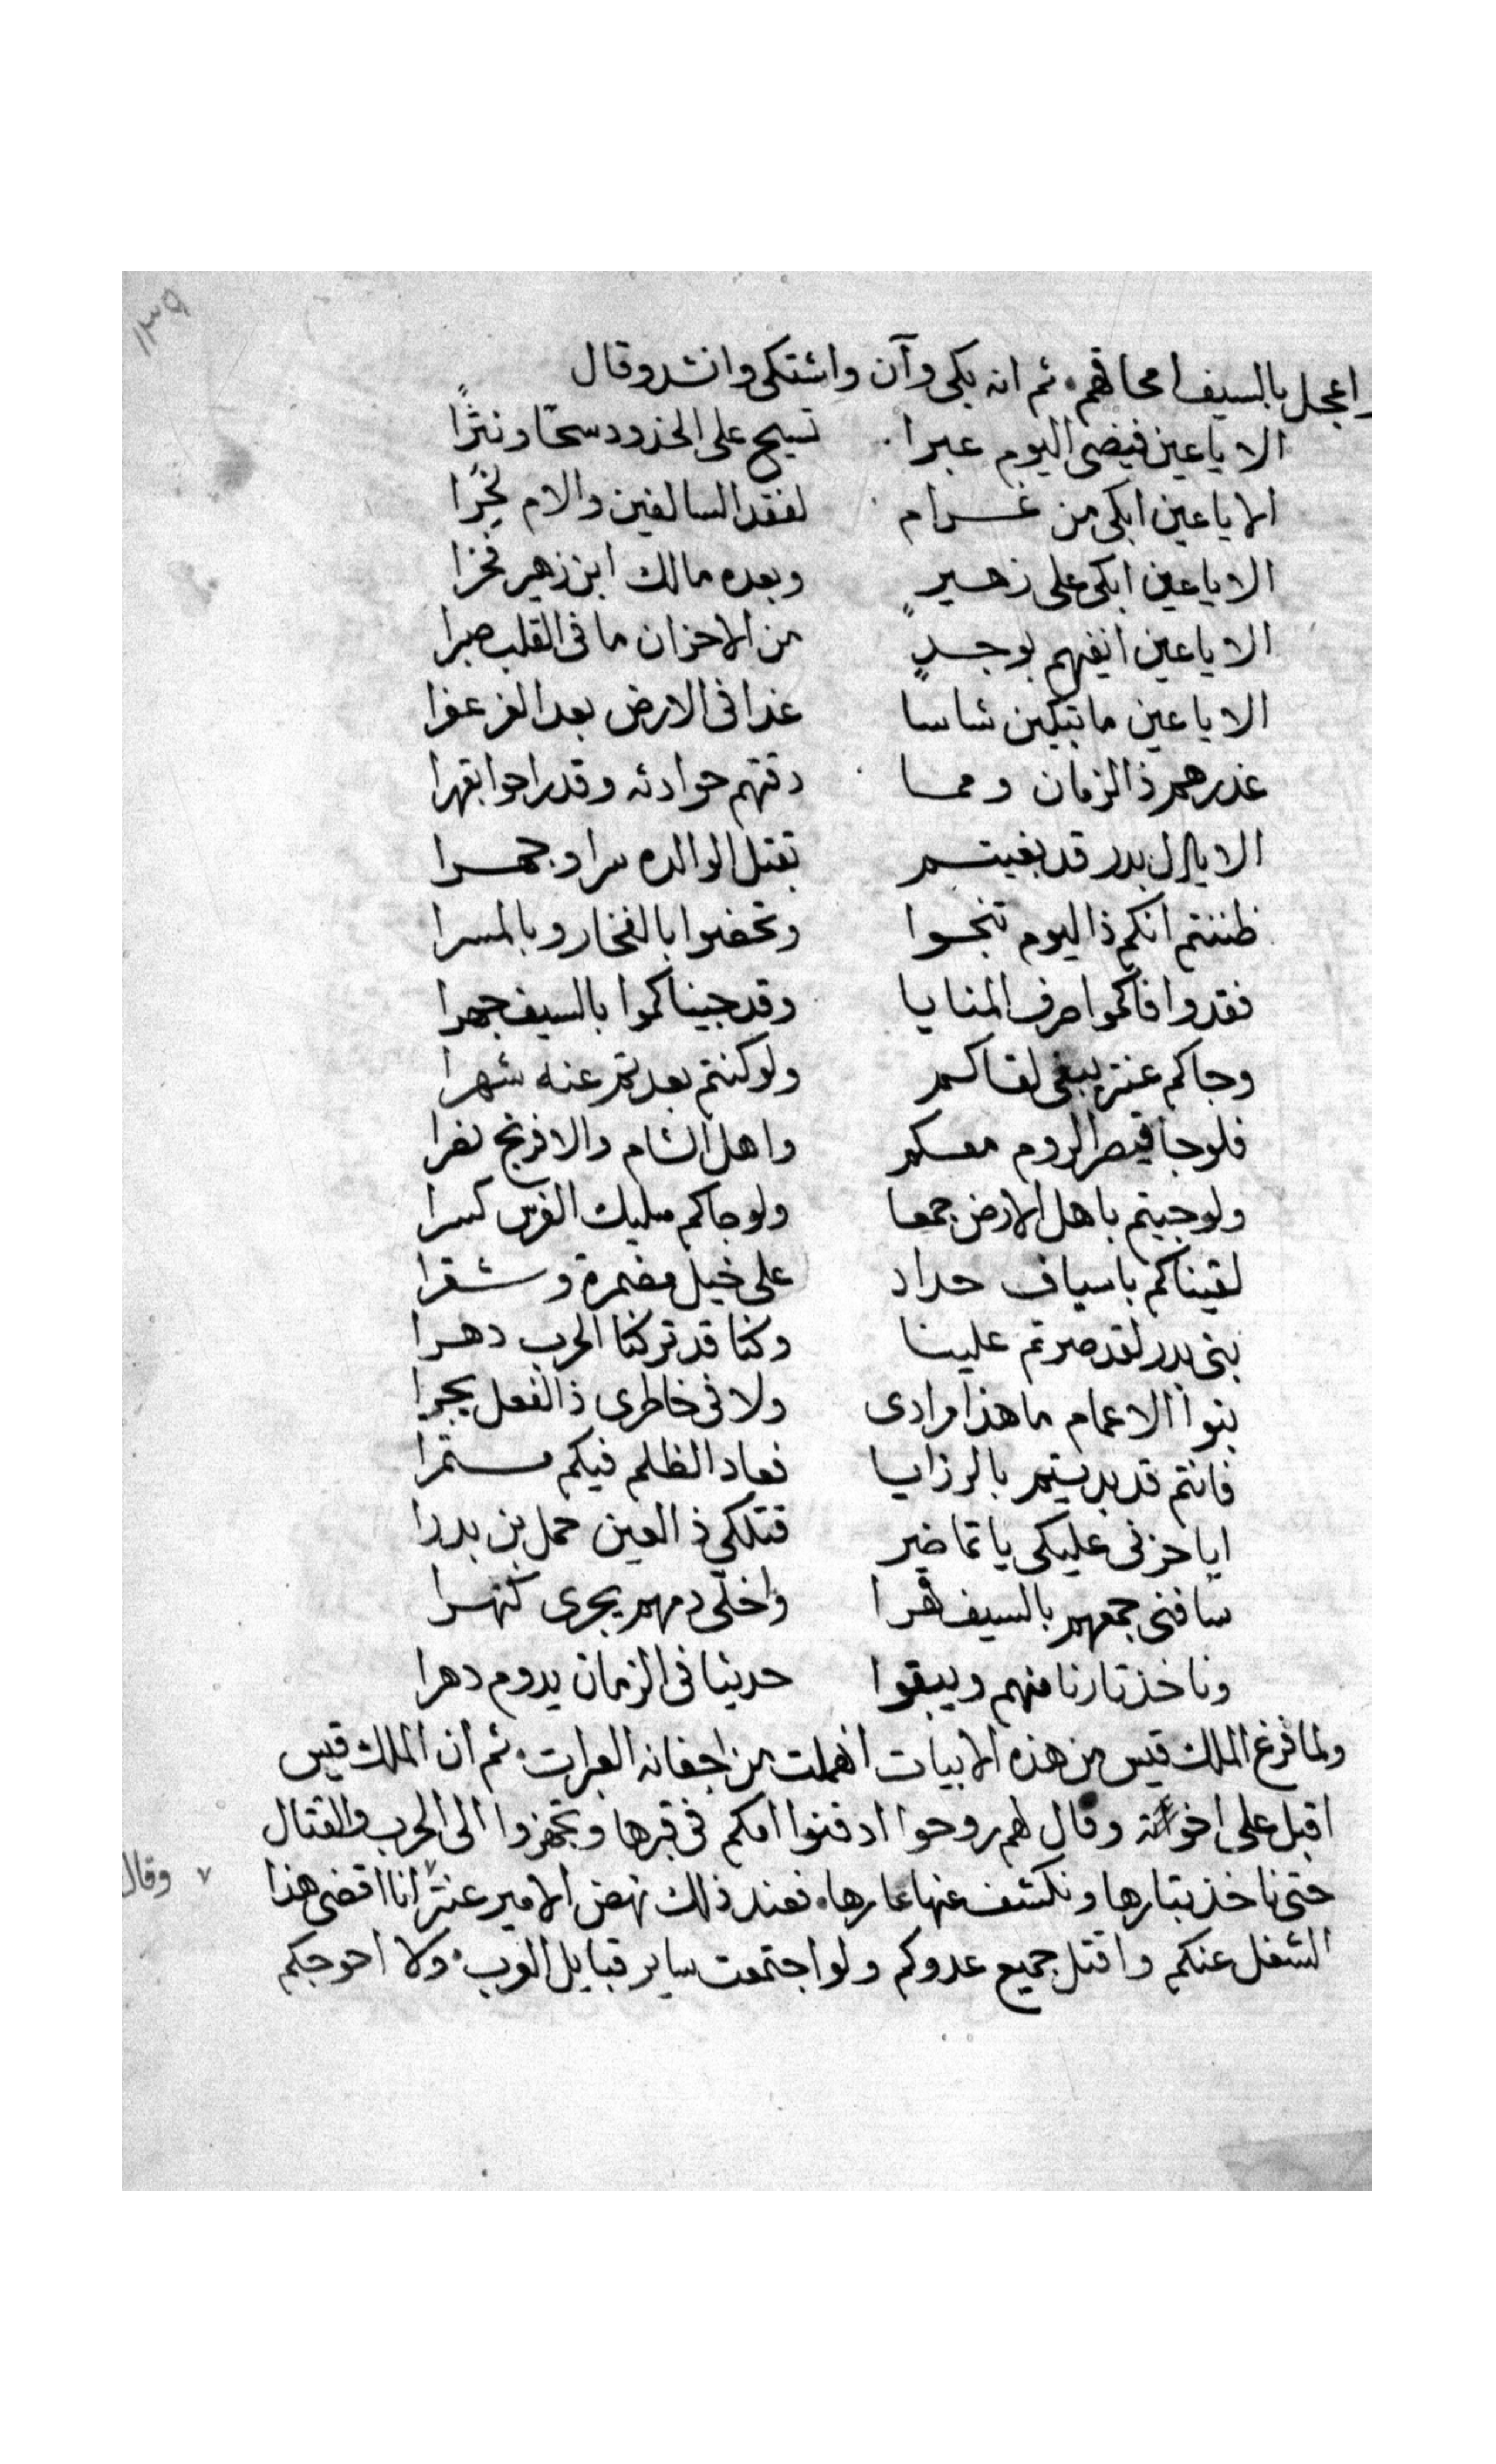 ١٣٩
واعجل بالسيف امحاقهم ثم انه بكى وآن واشتكى وانشد وقال
الا يا عين فيضى اليوم عبرا تسيح على الخدود سحًا ونثرًا
الا يا عين ابكى من غرام لفقد السالفين والام
الا يا عين ابكى على زهير وبعده مالك ابن زهير فخرا
الا يا عين بوجدٍ من الاحزان ما فى القلب صبرا
الا يا عين ما تبكين شاسا غدا فى الارض بعد العز عفرا
غدرهم ذا الزمان ومما دقتهم حوادثه وقد راحوا بقهرا
الا يال بدر قد بغيتم بقتل الوالده سرا وجهرا
ظننتم انكم ذا اليوم تنجوا وتحضوا بالفخار وبالمسرا
فقد وافاكموا صرف المنايا وقد جيناكموا بالسيف جهرا
وجاكم عنتر يبغى لقاكم ولو كنتم بعدتم عنه شهرا
فلو جا قيصر الروم معكم واهل الشام والافرنج نفرا
ولو جيتم باهل الارض جمعا ولو جاكم مليك الفرس كسرا
لقيناكم باسياف حداد على خيل مضمرة وشقرا
بنى بدر لقد صرتم علينا وكنا قد تركنا الحرب دهرا
بنوا الاعمام ما هذا مرادى ولا فى خاطرى ذا الفعل يجرا
فانتم قد بديتم بالرزايا فعاد الظلم فيكم مستمرا
ايا حزنى عليكى يا تماضر قتلكي ذا العين حمل بن بدرا
سافنى جمعهم بالسيف قهرا واخلى دمهم يجرى كنهرا
وناخذ تارنا منهم ويبقوا حديثا فى الزمان يدوم دهرا
ولما فرغ الملك قيس من هذه الابيات انهملت من اجفانه العبرات ثم ان الملك قيس
اقبل على اخوته وقال لهم روحوا ادفنوا امكم فى قبرها وتجهزوا الى الحرب والقتال
حتى ناخذ بتارها ونكشف عنها عارها فعند ذلك نهض الامير عنتر ٧ انا اقضى هذا
٧ وقال
الشغل عنكم واقتل جميع عدوكم ولو اجتمعت ساير قبايل العرب ولا احوجكم